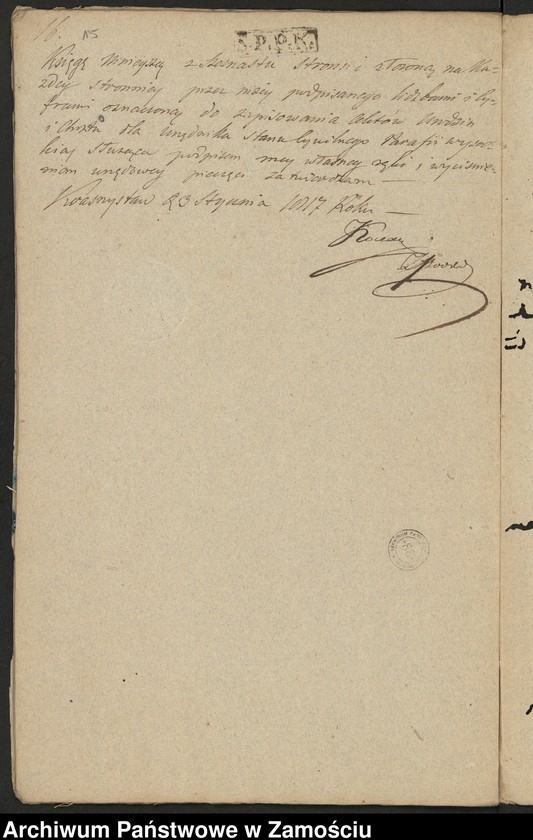 16.
S.P.P.K.
Księgę ninieyszą z stronic złożoną na ka-
żdey stronnicy przez niżey podpisanego liczbami i cy-
frami oznaczoną do zapisowania Aktów Urodzin
i Chrztu dla urzędnika Stanu Cywilnego Parafii
służącą podpisem mey własney ręki i wyciśnie-
niem urzędowey pieczęci zatwierdzam —
Krasnystaw 23 Stycznia 1817 Roku —
Archiwum Państwowe w Zamościu